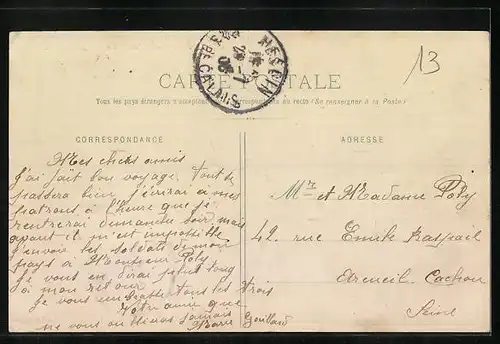 13
HESDIN
PAS-DE-CALAIS
CARTE POSTALE
Tous les pays étrangers n'acceptent pas la correspondance au recto (Se renseigner à la Poste)
CORRESPONDANCE
Mes chers amis
j'ai fait bon voyage. Tout se
passera bien j'écrirai a mes
patrons à l'heure que je
rentrerai dimanche soir mais
avant il m'est impossible
j'envoie les soldats de mon
pays à Monsieur Poly
Je vous en dirai plus long
à mon retour
Je vous embrasse tous les trois
Votre amie que
ne vous oubliera jamais
Marie Gouillard
ADRESSE
Mr et Madame Poly
42 rue Emile Raspail
Arcueil Cachan
Seine